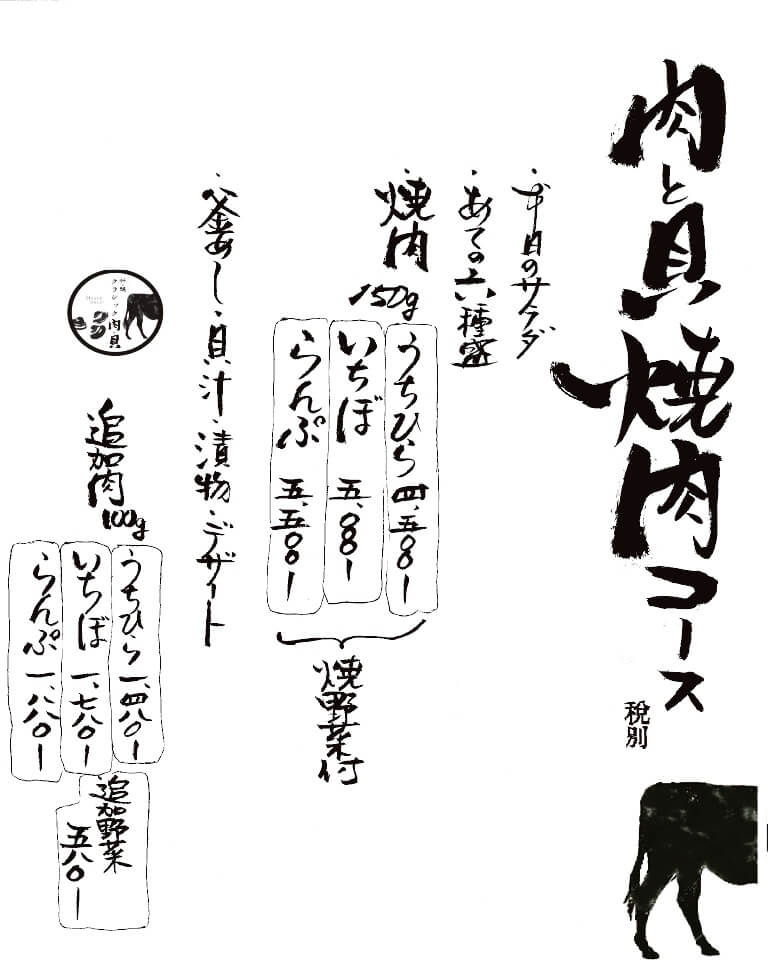 肉と貝焼肉コース
税別
・本日のサラダ
・あての六種盛
・焼肉
150g
うちひら 四、五〇〇ー
いちぼ 五、〇〇〇ー
らんぷ 五、五〇〇ー
焼野菜付
・釜めし・貝汁・漬物・デザート
クラシック肉と貝
追加肉
100g
うちひら 一、四八〇ー
いちぼ 一、七八〇ー
らんぷ 一、八八〇ー
追加野菜
五八〇ー